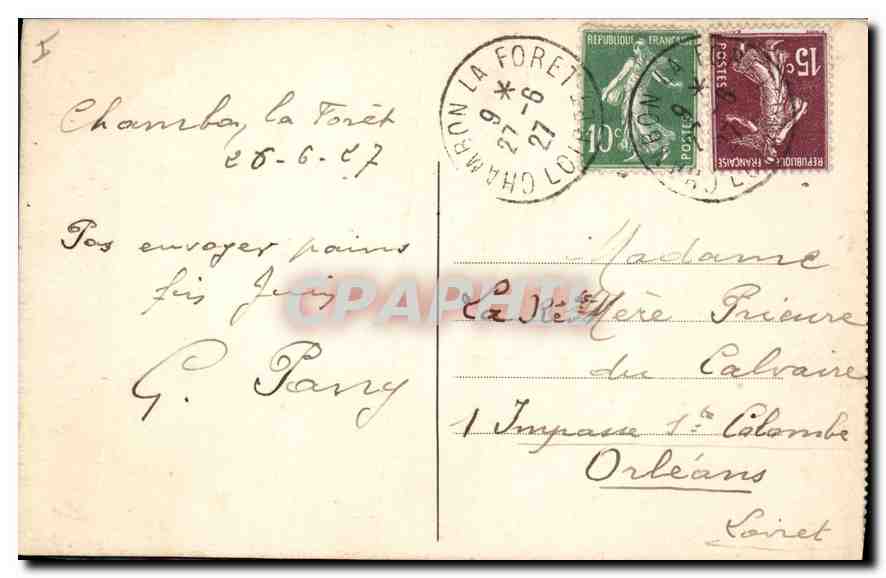 I
Chambon la Forêt
26-6-27
Pas envoyer pains
fin Juin
G. Pany
CHAMBON LA FORET
LOIRET
*
9
27-6
27
REPUBLIQUE FRANÇAISE
10c
POSTES
15c
POSTES
REPUBLIQUE FRANÇAISE
CPARHIL
Madame
La Rde Mère Prieure
du Calvaire
1 Impasse Ste Colombe
Orléans
Loiret